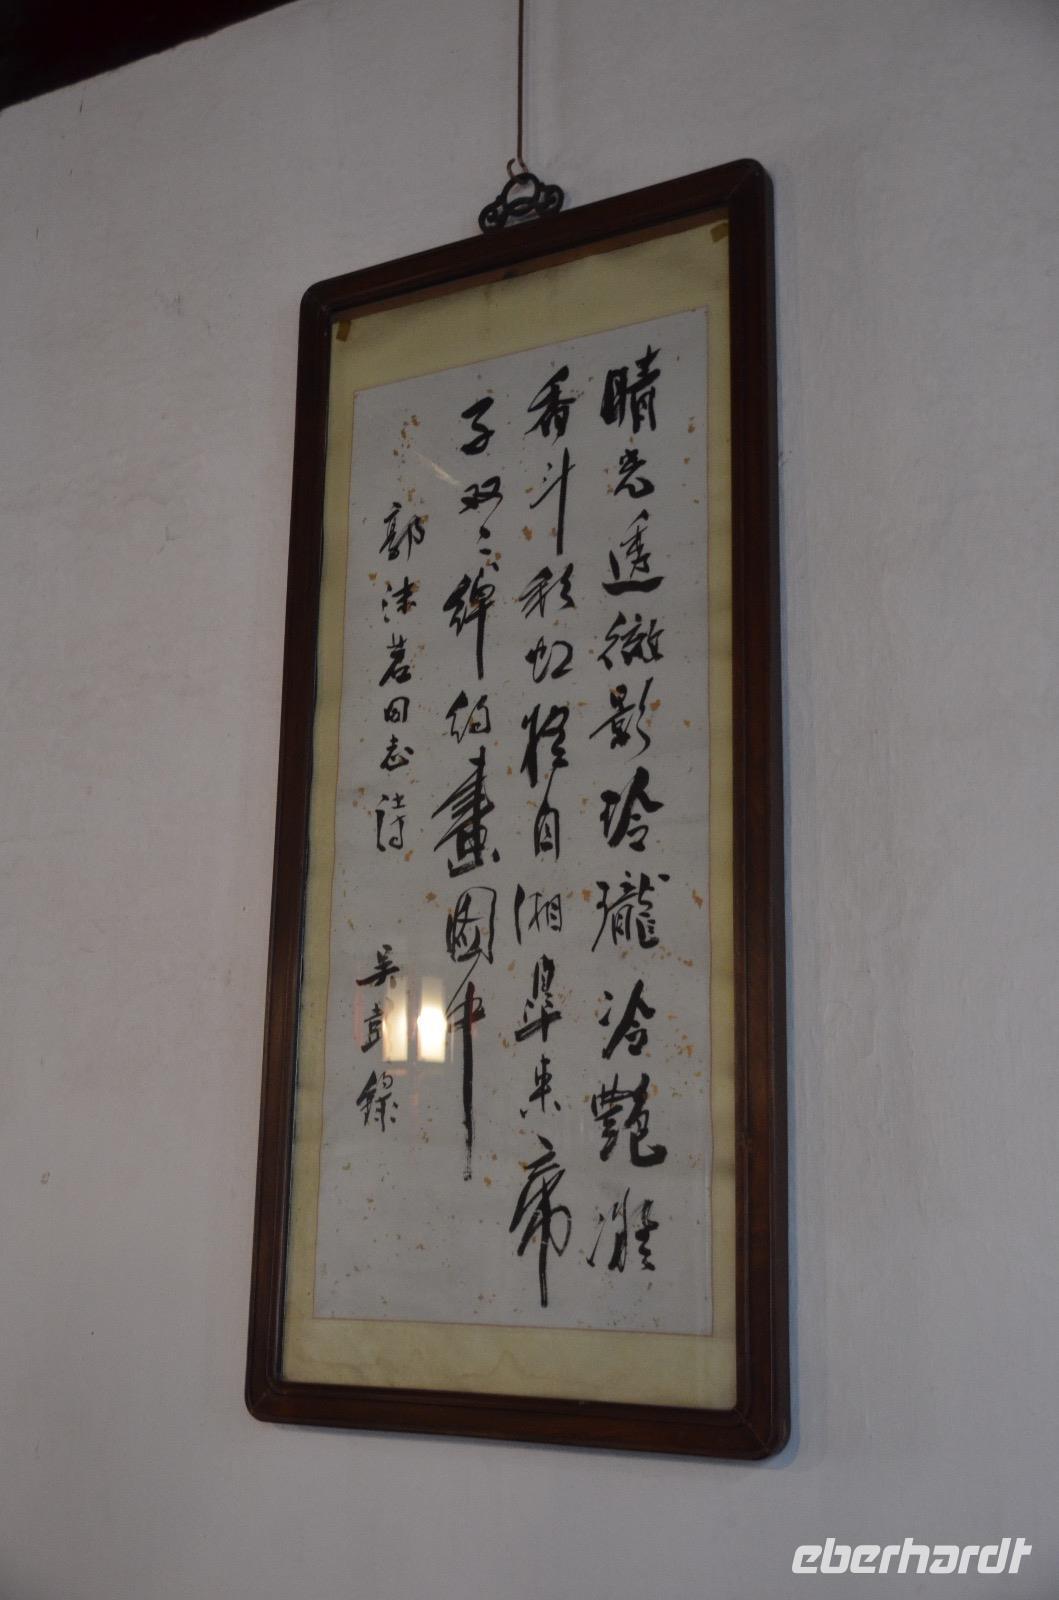 晴光透澈影玲瓏冷艷凝
香斗彩虹怪自湘皋来帝
子双々綽约畫图中
郭沫若同志詩
吴彭錄
eberhardt